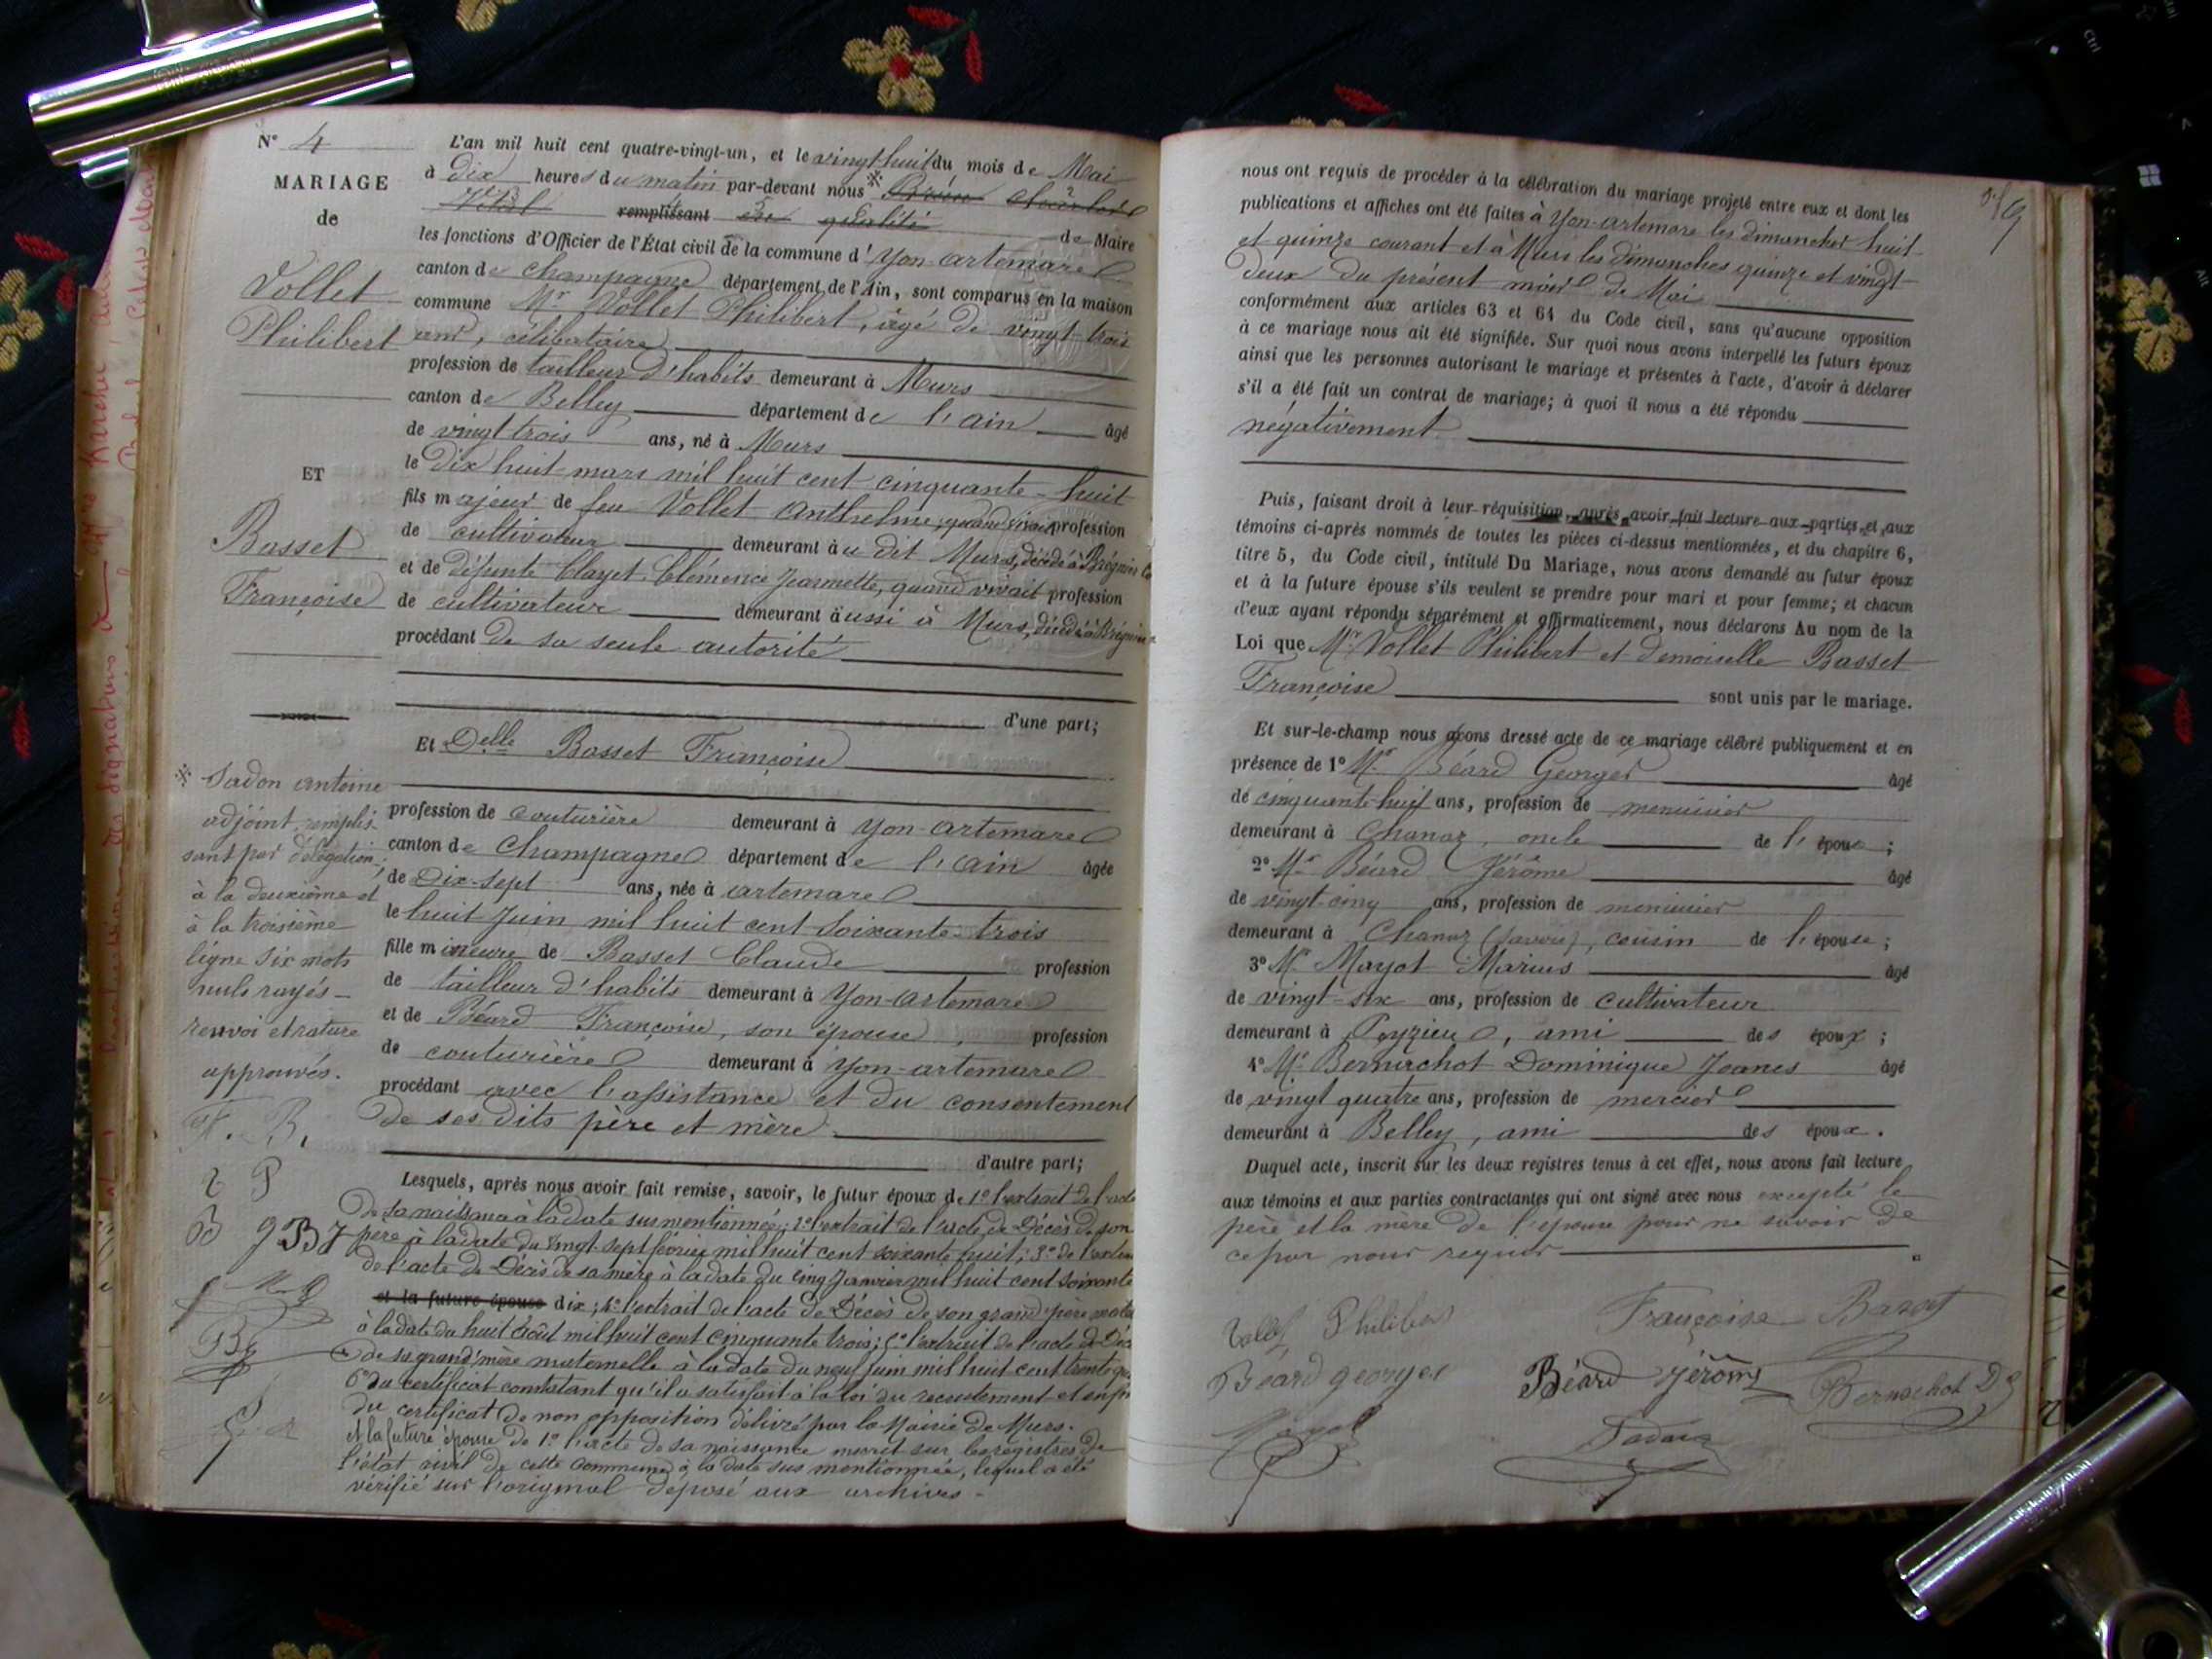 N° 4
MARIAGE
de
Vollet
Philibert
ET
Basset
Françoise
※ Sadon antoine
adjoint, remplis-
sant par délégation;
à la deuxième et
à la troisième
ligne six mots
nuls rayés_
renvoi et rature
approuvés.
F. B.
L'an mil huit cent quatre-vingt-un, et le vingt huit du mois de Mai
à dix heures du matin par-devant nous ※ Charles
Vital remplissant en qualité de Maire
les fonctions d'Officier de l'État civil de la commune d'Yon-artemare
canton de Champagne département de l'Ain, sont comparus en la maison
commune Mr Vollet Philibert, âgé de vingt-trois
ans, célibataire
profession de tailleur d'habits demeurant à Murs
canton de Belley département de l'ain âgé
de vingt trois ans, né à Murs
le dix huit mars mil huit cent cinquante-huit
fils majeur de feu Vollet Anthelme, quand vivait profession
de cultivateur demeurant àu dit Murs, décédé à Brégnier
et de défunte Clayet Clémence Jeannette, quand vivait profession
de cultivateur demeurant àussi à Murs, décédé à Brégnier
procédant de sa seule autorité
d'une part;
Et Delle Basset Françoise
profession de couturière demeurant à Yon-artemare
canton de Champagne département de l'ain âgée
de Dix-sept ans, née à artemare
le huit Juin mil huit cent Soixante-trois
fille mineure de Basset Claude profession
de tailleur d'habits demeurant à Yon-artemare
et de Béard Françoise, son épouse, profession
de couturière demeurant à Yon-artemare
procédant avec l'assistance et du consentement
de ses dits père et mère
d'autre part;
Lesquels, après nous avoir fait remise, savoir, le futur époux de 1° l'extrait de l'acte
de sa naissance à la date susmentionnée; 2° l'extrait de l'acte de Décès de son
père à la date du vingt-sept février mil huit cent soixante huit; 3° de l'extrait
de l'acte de Décès de sa mère à la date du cinq Janvier mil huit cent soixante
et la future épouse dix; 4° l'extrait de l'acte de Décès de son grand père
à la date du huit Août mil huit cent cinquante trois; 5° l'extrait de l'acte de
de sa grand'mère maternelle à la date du neuf Juin mil huit cent
6° du certificat constatant qu'il a satisfait à la loi du recrutement et enfin
du certificat de non opposition délivré par la Mairie de Murs.
et la future épouse de 1° l'acte de sa naissance inscrit sur les registres de
l'état civil de cette commune à la date sus mentionnée, lequel a été
vérifié sur l'original déposé aux archives-
nous ont requis de procéder à la célébration du mariage projeté entre eux et dont les
publications et affiches ont été faites à Yon-artemare les dimanches huit
et quinze courant et à Murs les dimanches quinze et vingt-
deux du présent mois de Mai
conformément aux articles 63 et 64 du Code civil, sans qu'aucune opposition
à ce mariage nous ait été signifiée. Sur quoi nous avons interpellé les futurs époux
ainsi que les personnes autorisant le mariage et présentes à l'acte, d'avoir à déclarer
s'il a été fait un contrat de mariage; à quoi il nous a été répondu
négativement
Puis, faisant droit à leur réquisition, après avoir fait lecture aux parties et aux
témoins ci-après nommés de toutes les pièces ci-dessus mentionnées, et du chapitre 6,
titre 5, du Code civil, intitulé Du Mariage, nous avons demandé au futur époux
et à la future épouse s'ils veulent se prendre pour mari et pour femme; et chacun
d'eux ayant répondu séparément et affirmativement, nous déclarons Au nom de la
Loi que Mr Vollet Philibert et demoiselle Basset
Françoise sont unis par le mariage.
Et sur-le-champ nous avons dressé acte de ce mariage célébré publiquement et en
présence de 1° Mr Béard Georges âgé
de cinquante-huit ans, profession de menuisier
demeurant à Chanaz, oncle de l'épouse;
2° Mr Béard Jérôme âgé
de vingt-cinq ans, profession de menuisier
demeurant à Chanaz (Savoie), cousin de l'épouse;
3° Mr Mayot Marius âgé
de vingt-six ans, profession de cultivateur
demeurant à Peyzieu, ami des époux;
4° Mr Bernurchot Dominique Joanes âgé
de vingt quatre ans, profession de mercier
demeurant à Belley, ami des époux.
Duquel acte, inscrit sur les deux registres tenus à cet effet, nous avons fait lecture
aux témoins et aux parties contractantes qui ont signé avec nous excepté le
père et la mère de l'épouse pour ne savoir de
ce par nous requis
Philibert Françoise Basset
Béard georges Béard jérôme